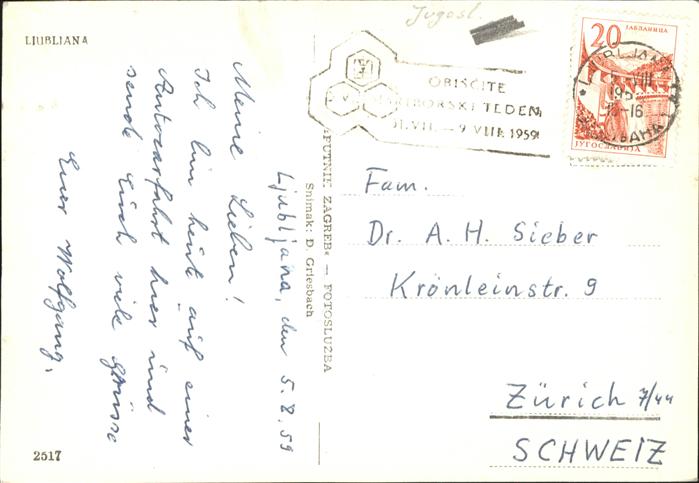 LJUBLJANA
Jugosl.
OBIŠČITE
MARIBORSKI TEDEN
31. VII. – 9 VIII. 1959
20
ЈАБЛАНИЦА
ЈУГОСЛАВИЈА
LJUBLJANA
VIII
195
15-16
Ljubljana, den 5.8.59
Meine Lieben!
Ich bin heute auf einer
Autocarfahrt hier und
sende Euch viele Grüsse
Euer Wolfgang.
»PUTNIK ZAGREB« — FOTOSLUŽBA
Snimak: D. Griesbach
Fam.
Dr. A. H. Sieber
Krönleinstr. 9
Zürich 7/44
SCHWEIZ
2517